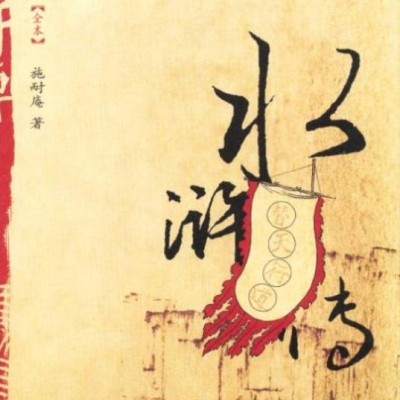 【全本】
施耐庵 著
水浒传
替天行道